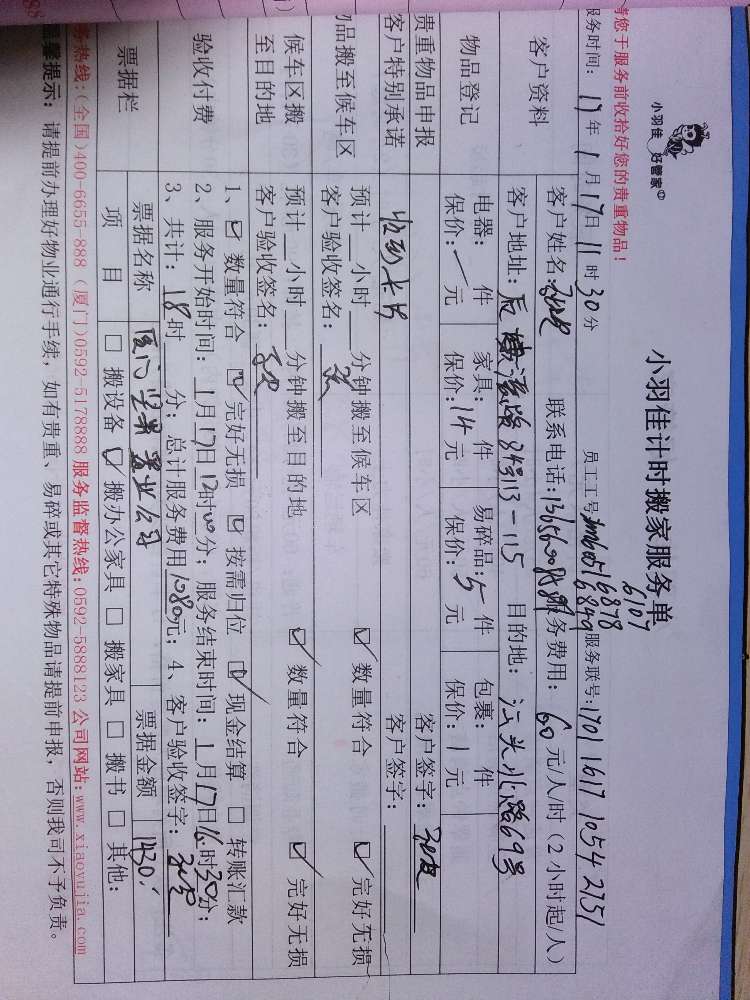 小羽佳
好管家
小羽佳计时搬家服务单
请您于服务前收拾好您的贵重物品!
员工工号 6107
16878
6849
服务时间: 17年1月17日11时30分
服务联号: 1701 1617 1054 2751
客户资料
客户姓名:
联系电话:
服务费用: 60元/人/时(2小时起/人)
客户地址:
目的地: 江头北路69号
物品登记
电器: 件 家具: 件 易碎品: 5件 包裹: 件
保价: 一元 保价: 14元 保价: 元 保价: 1元
贵重物品申报
客户签字:
客户特别承诺
客户签字:
物品搬至候车区
预计__小时__分钟搬至候车区 ☑数量符合 ☑完好无损
客户验收签名:
候车区搬至目的地
预计__小时__分钟搬至目的地 ☑数量符合 ☑完好无损
客户验收签名:
验收付费
1、☑数量符合 ☑完好无损 ☑按需归位 ☑现金结算 □转账汇款
2、服务开始时间: 1月17日12时00分; 服务结束时间: 1月17日16时30分;
3、共计: 18时__分; 总计服务费用1080元; 4、客户验收签字:
票据栏
票据名称 厦门 置业公司 票据金额 1430.
项目 □搬设备 ☑搬办公家具 □搬家具 □搬书 □其他:
服务热线:(全国)400-6655-888 (厦门)0592-5178888 服务监督热线:0592-5888123 公司网站:www.xiaoyujia.com
温馨提示: 请提前办理好物业通行手续, 如有贵重、易碎或其它特殊物品请提前申报, 否则我司不予负责。